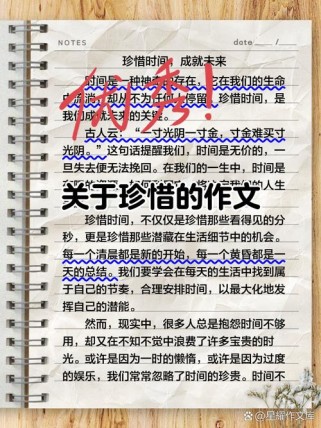 NOTES
date
珍惜时间，成就未来
时间是一种神奇的存在，它在我们的生命
中流淌，却从不为任何人停留。珍惜时间，是
我们成就未来的关键。
优秀!
古人云：“一寸光阴一寸金，寸金难买寸
光阴。”这句话提醒我们，时间是无价的，一
旦失去便无法挽回。在我们的一生中，时间是
人生
关于珍惜的作文
珍惜时间，不仅仅是珍惜那些看得见的分
秒，更是珍惜那些潜藏在生活细节中的机会。
每一个清晨都是新的开始，每一个黄昏都是一
天的总结。我们要学会在每天的生活中找到属
于自己的节奏，合理安排时间，以最大化地发
挥自己的潜能。
然而，现实中，很多人总是抱怨时间不够
用，却又在不知不觉中浪费了许多宝贵的时
光。或许是因为一时的懒惰，或许是因为过度
的娱乐，我们常常忽略了时间的珍贵。时间不
@星耀作文库